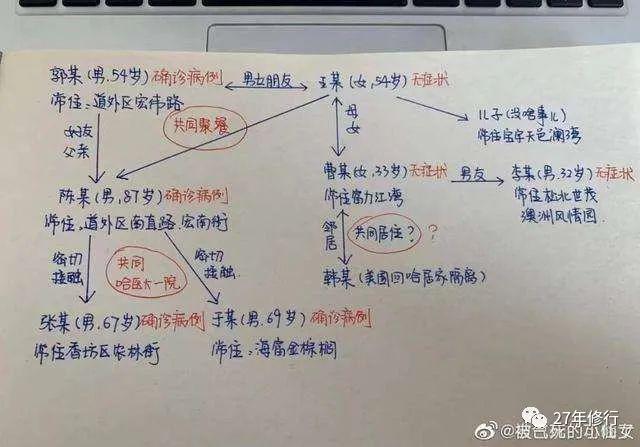 郭某(男.54岁)确诊病例
男女朋友
王某(女,54岁)无症状
常住:道外区宏伟路
儿子(没啥事儿)
常住宝宇天邑澜湾
女朋友
父亲
共同聚餐
母
女
陈某(男,87岁)确诊病例
常住:道外区南直路.宏南街
曹某(女,33岁)无症状
常住富力江湾
男友
李某(男,32岁)无症状
常住松北世茂
澳洲风情园.
邻
居
共同居住?
?
密切
接触
共同
哈医大一院
密切
接触
韩某(美国回哈居家隔离)
张某(男.67岁)确诊病例
常住香坊区农林街
于某(男.69岁)确诊病例
常住:海富金棕榈
27年修行
@被台死的小仙女